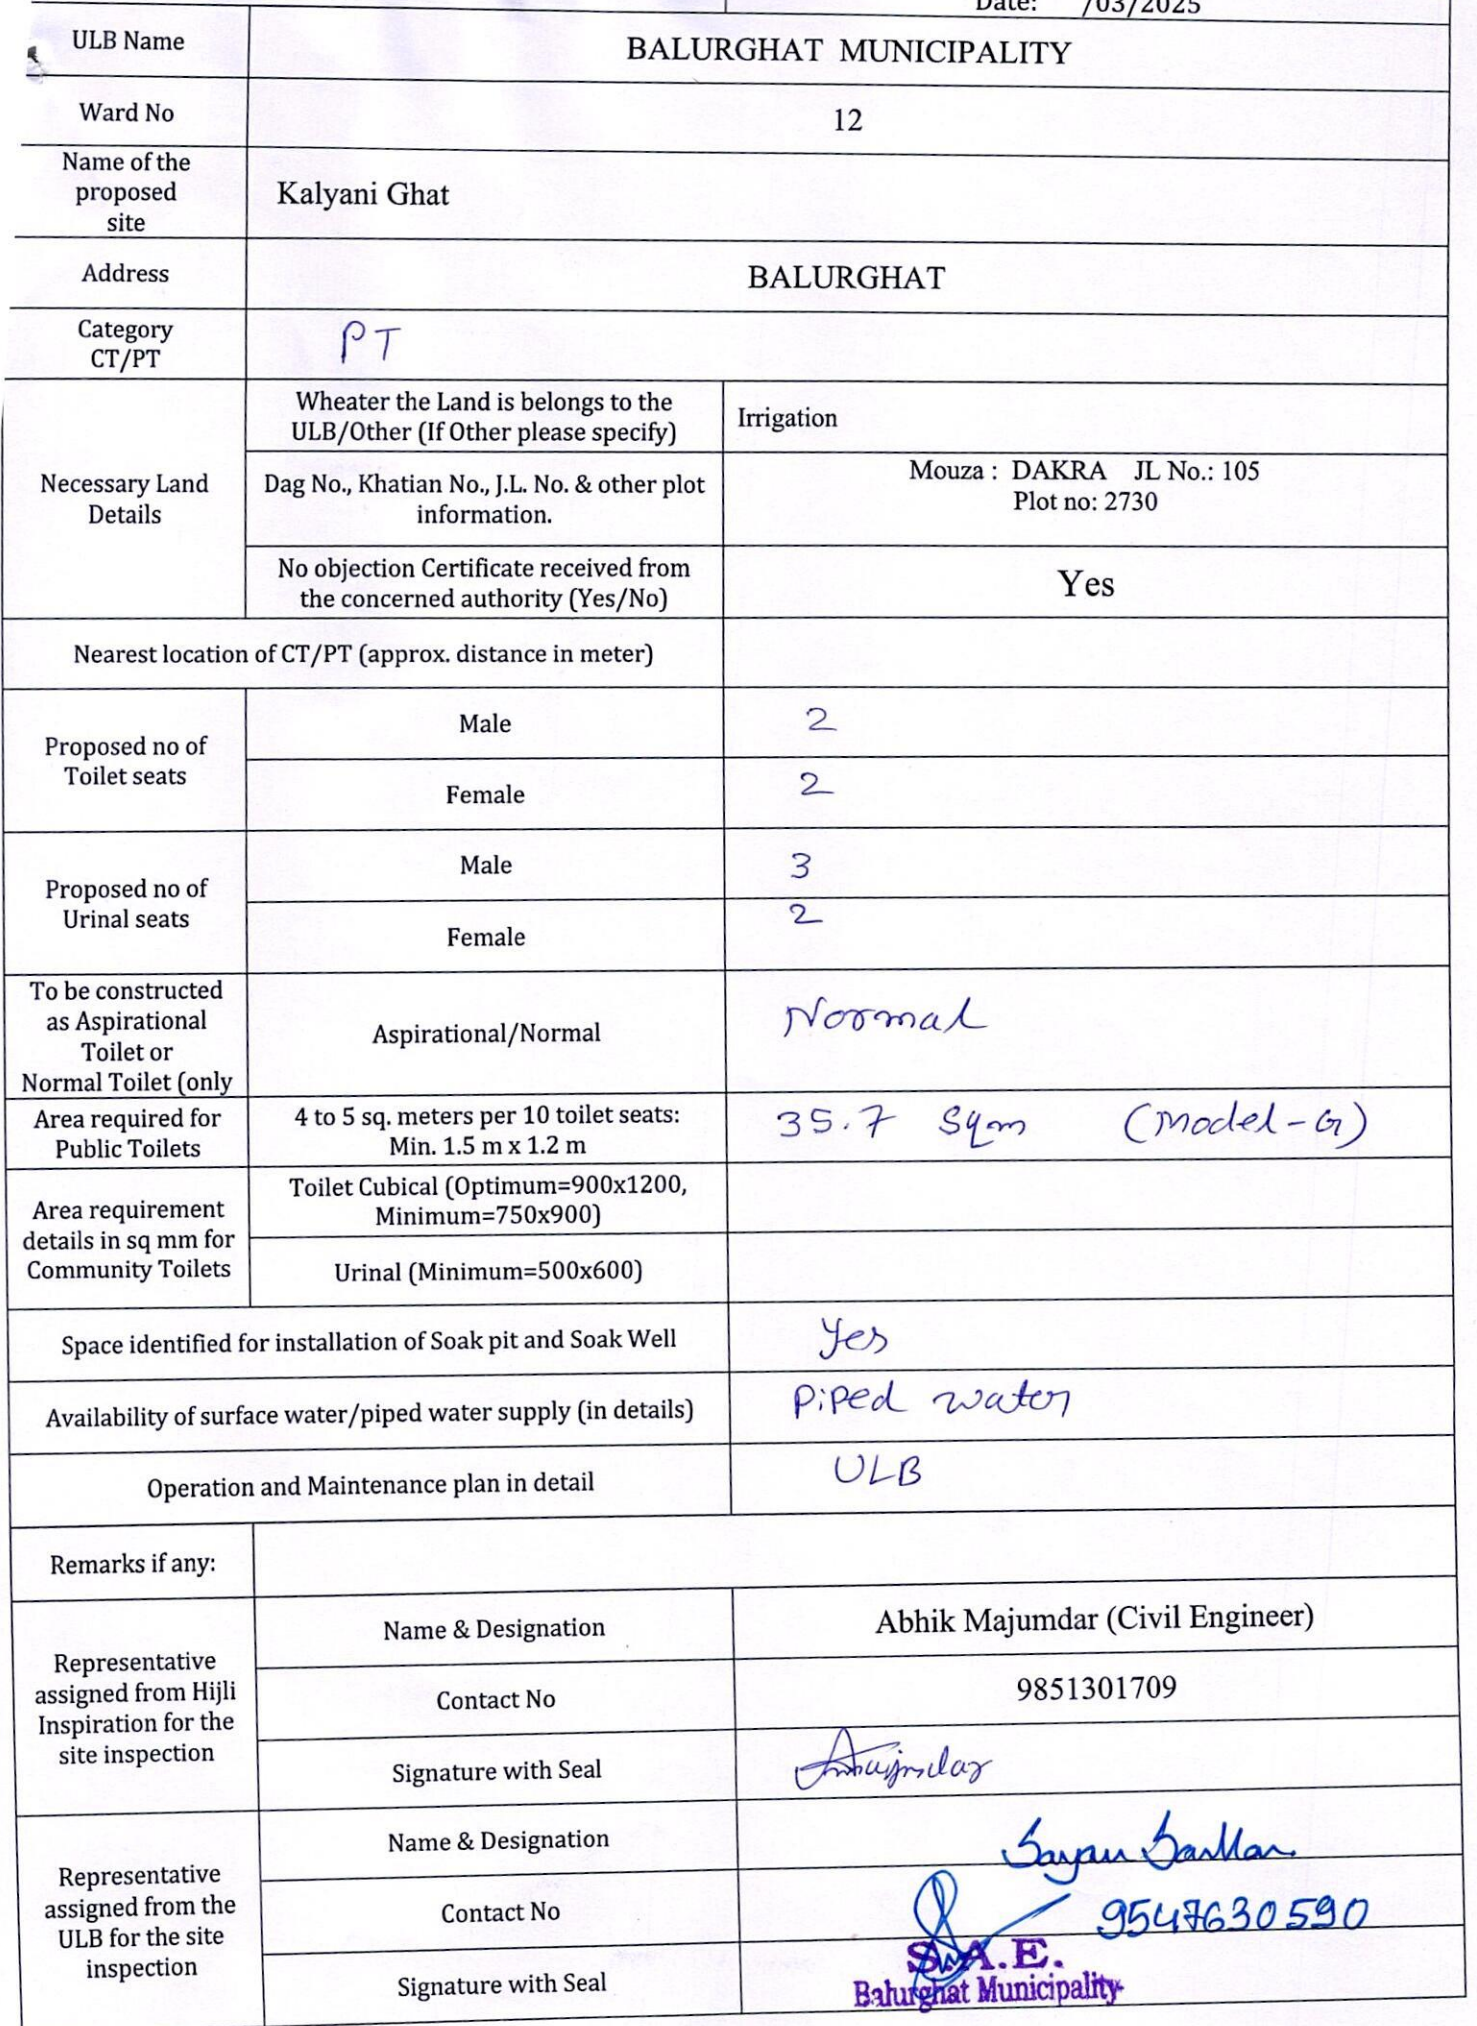 Date: /03/2025
ULB Name
BALURGHAT MUNICIPALITY
Ward No
12
Name of the
proposed
site
Kalyani Ghat
Address
BALURGHAT
Category
CT/PT
PT
Necessary Land
Details
Wheater the Land is belongs to the
ULB/Other (If Other please specify)
Irrigation
Dag No., Khatian No., J.L. No. & other plot
information.
Mouza : DAKRA JL No.: 105
Plot no: 2730
No objection Certificate received from
the concerned authority (Yes/No)
Yes
Nearest location of CT/PT (approx. distance in meter)
Proposed no of
Toilet seats
Male
2
Female
2
Proposed no of
Urinal seats
Male
3
Female
2
To be constructed
as Aspirational
Toilet or
Normal Toilet (only
Aspirational/Normal
Normal
Area required for
Public Toilets
4 to 5 sq. meters per 10 toilet seats:
Min. 1.5 m x 1.2 m
35.7 Sqm (Model-G)
Area requirement
details in sq mm for
Community Toilets
Toilet Cubical (Optimum=900x1200,
Minimum=750x900)
Urinal (Minimum=500x600)
Space identified for installation of Soak pit and Soak Well
Yes
Availability of surface water/piped water supply (in details)
Piped water
Operation and Maintenance plan in detail
ULB
Remarks if any:
Representative
assigned from Hijli
Inspiration for the
site inspection
Name & Designation
Abhik Majumdar (Civil Engineer)
Contact No
9851301709
Signature with Seal
Representative
assigned from the
ULB for the site
inspection
Name & Designation
Sayan Sarkar
Contact No
9547630590
Signature with Seal
S.A.E.
Balurghat Municipality